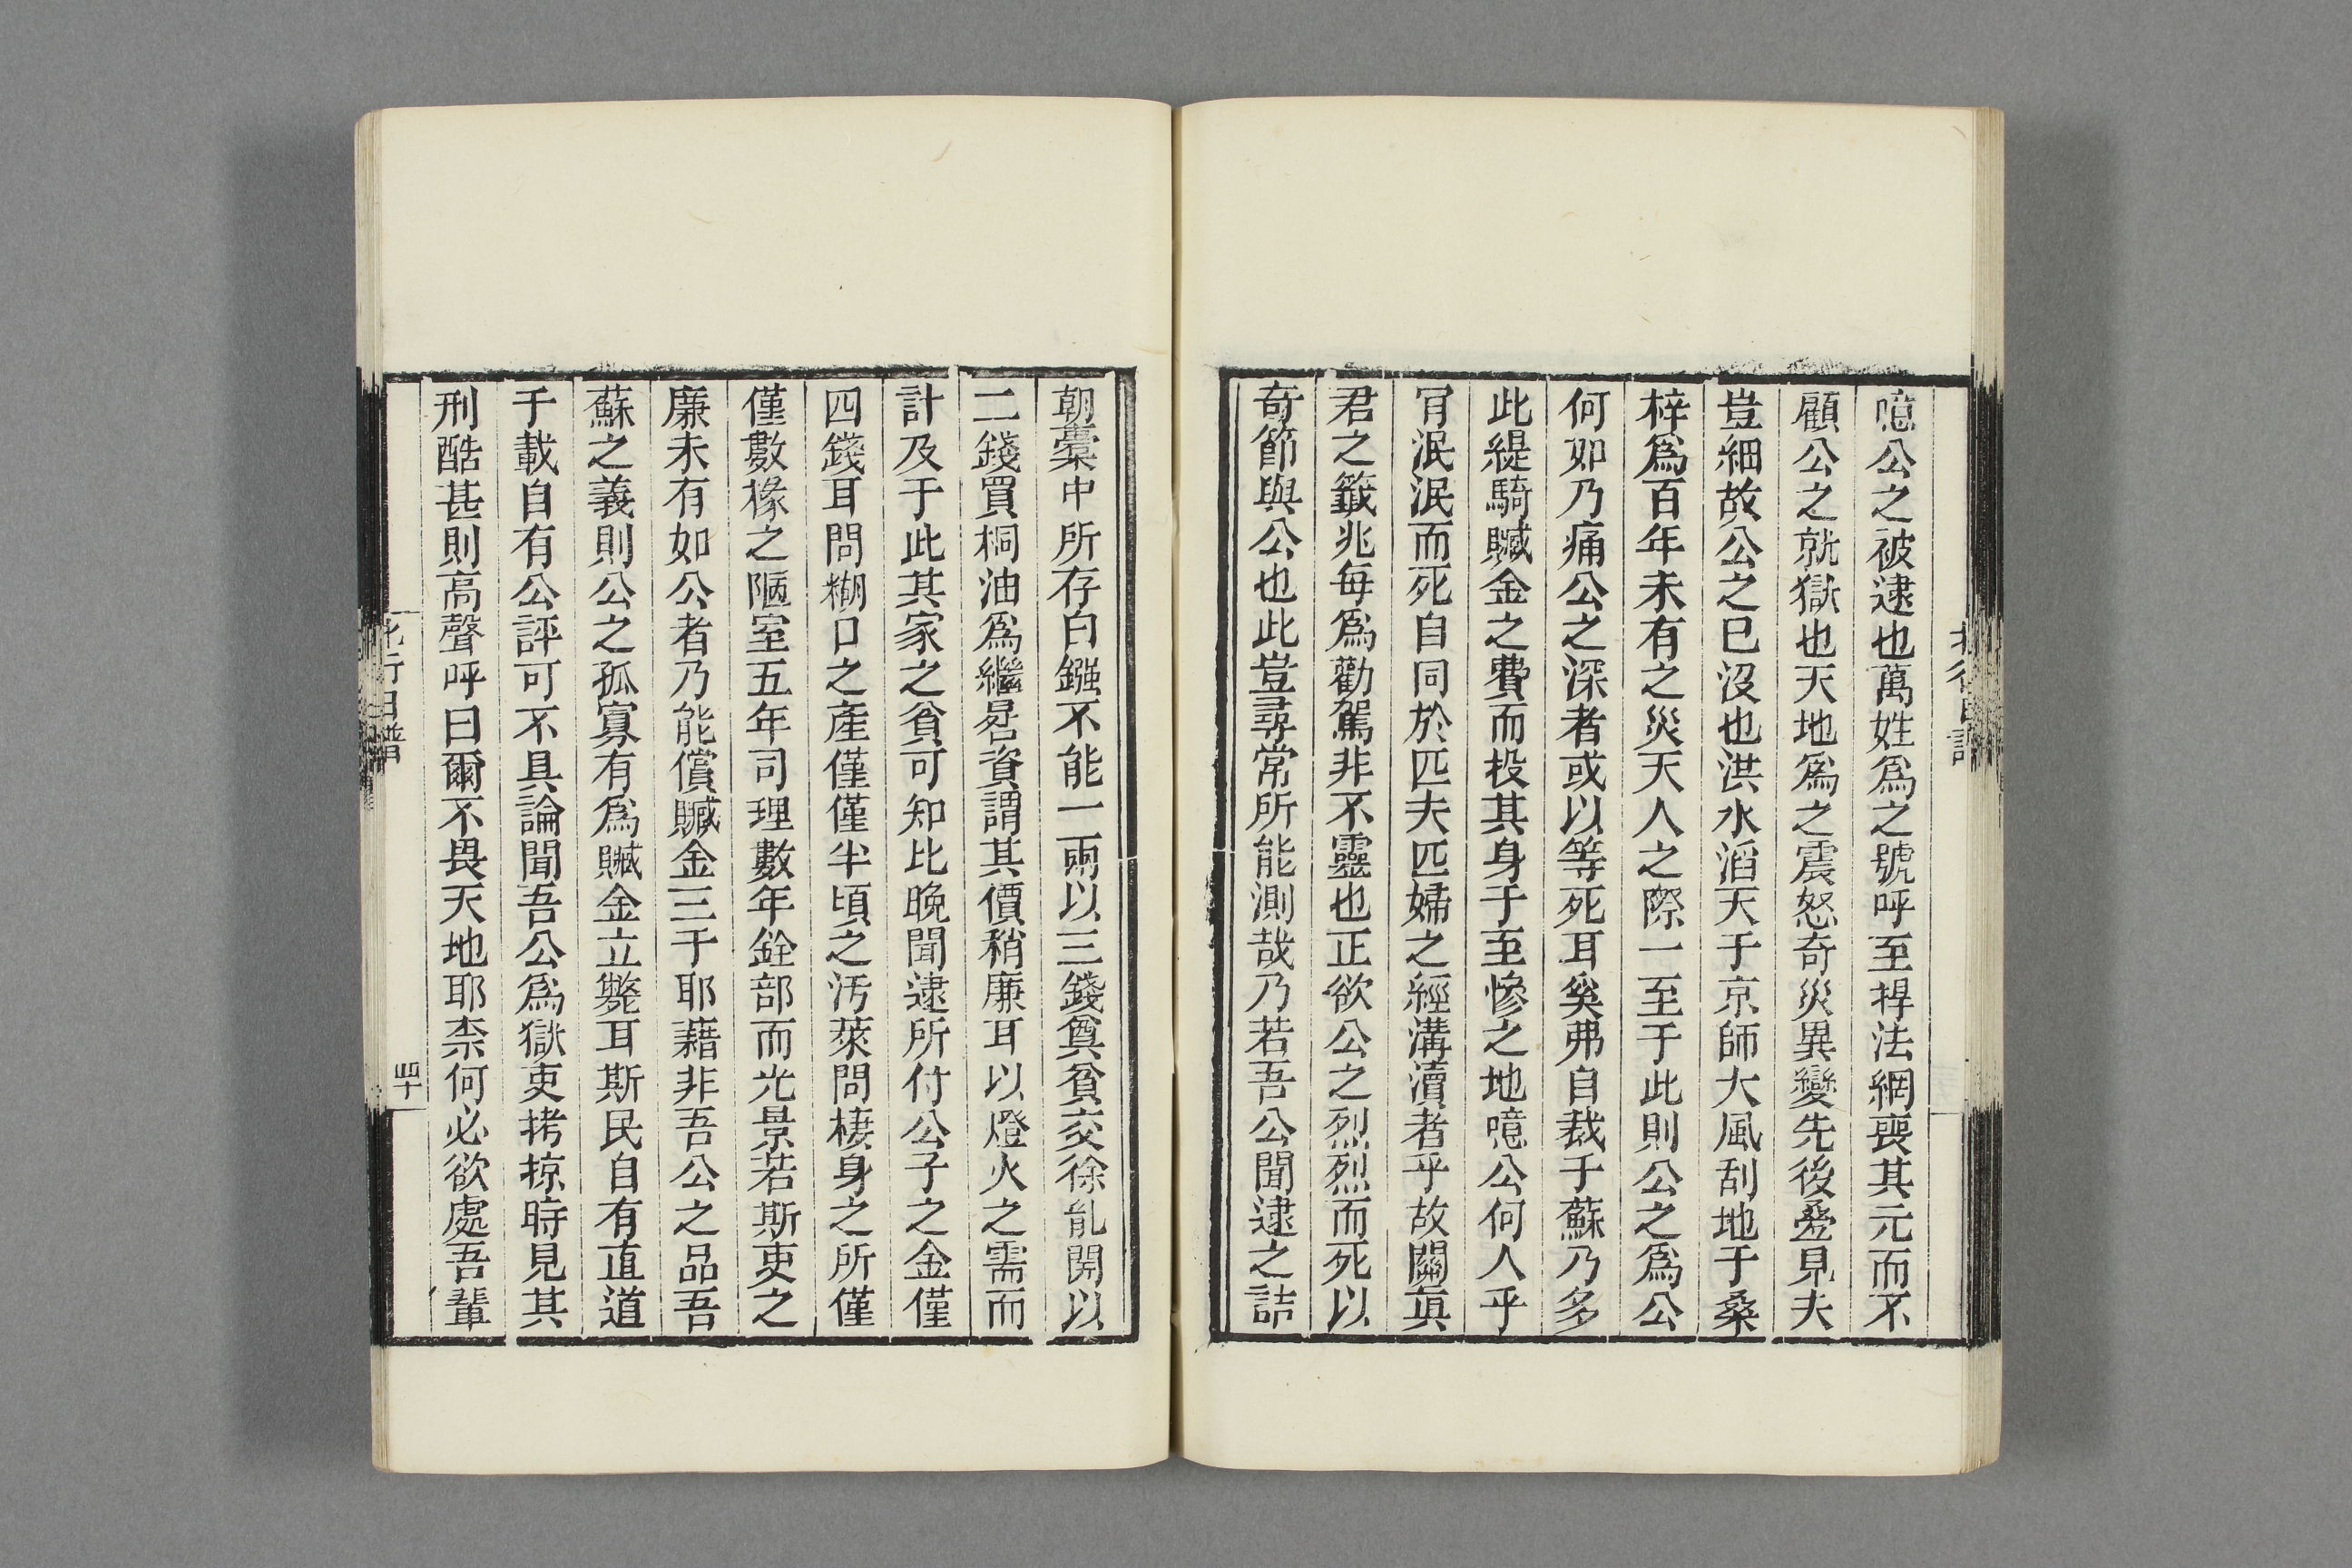 噫公之被逮也萬姓爲之號呼至捍法網喪其元而不
顧公之就獄也天地爲之震怒奇災異變先後疊見夫
豈細故公之已沒也洪水滔天于京師大風刮地于桑
梓爲百年未有之災天人之際一至于此則公之爲公
何如乃痛公之深者或以等死耳奚弗自裁于蘇乃多
此緹騎贓金之費而投其身于至慘之地噫公何人乎
肎泯泯而死自同於匹夫匹婦之經溝瀆者乎故關眞
君之籤兆每爲勸駕非不靈也正欲公之烈烈而死以
奇節與公也此豈尋常所能測哉乃若吾公聞逮之詰
朝橐中所存白鏹不能一兩以三錢奠貧交徐能開以
二錢買桐油爲繼晷資謂其價稍廉耳以燈火之需而
計及于此其家之貧可知比晚聞逮所付公子之金僅
四錢耳問糊口之產僅僅半頃之汚萊問棲身之所僅
僅數椽之陋室五年司理數年銓部而光景若斯吏之
廉未有如公者乃能償贓金三千耶藉非吾公之品吾
蘇之義則公之孤寡有爲贓金立斃耳斯民自有直道
千載自有公評可不具論聞吾公爲獄吏拷掠時見其
刑酷甚則高聲呼曰爾不畏天地耶柰何必欲處吾輩
北行日譜
四十